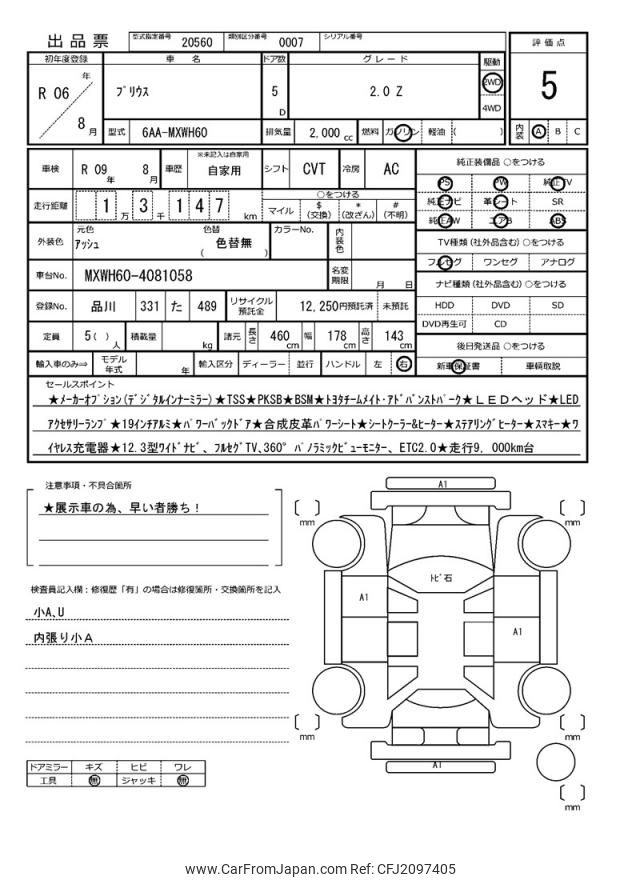 出品票
型式指定番号 20560 類別区分番号 0007 シリアル番号
評価点
5
内装 A B C
初年度登録 車名 ドア数 グレード 駆動
R 06 年 8 月
プリウス 5 D 2.0 Z 2WD 4WD
型式 6AA-MXWH60 排気量 2,000 cc 燃料 ガソリン 軽油 ( )
車検 R 09 年 8 月 車歴 ※未記入は自家用 自家用 シフト CVT 冷房 AC
走行距離 1 万 3 千 1 4 7 km
○をつける
マイル $ (交換) * (改ざん) # (不明)
外装色 元色 アッシュ 色替 ( 色替無 ) カラーNo. 内装色
車台No. MXWH60-4081058 名変期限 月 日
登録No. 品川 331 た 489 リサイクル預託金 12,250円預託済 未預託
定員 5( ) 人 積載量 kg 諸元 長さ 460 cm 幅 178 cm 高さ 143 cm
輸入車のみ⇒ モデル年式 年 輸入区分 ディーラー 並行 ハンドル 左 右
純正装備品 ○をつける
PS PW 純正TV
純正ナビ 革シート SR
純正AW エアB ABS
TV種類(社外品含む) ○をつける
フルセグ ワンセグ アナログ
ナビ種類(社外品含む) ○をつける
HDD DVD SD
DVD再生可 CD
後日発送品 ○をつける
新車保証書 車輌取説
セールスポイント
★メーカーオプション(デジタルインナーミラー)★TSS★PKSB★BSM★トヨタチームメイト・アドバンストパーク★LEDヘッド★LED
アクセサリーランプ★19インチアルミ★パワーバックドア★合成皮革パワーシート★シートクーラー&ヒーター★ステアリングヒーター★スマキー★ワ
イヤレス充電器★12.3型ワイドナビ、フルセグTV、360°パノラミックビューモニター、ETC2.0★走行9,000km台
注意事項・不具合箇所
★展示車の為、早い者勝ち!
検査員記入欄:修復歴「有」の場合は修復箇所・交換箇所を記入
小A、U
内張り小A
ドアミラー キズ ヒビ ワレ
工具 無 ジャッキ 無
A1
mm mm
トビ石
A1
A1
mm mm
A1
mm
www.CarFromJapan.com Ref: CFJ2097405